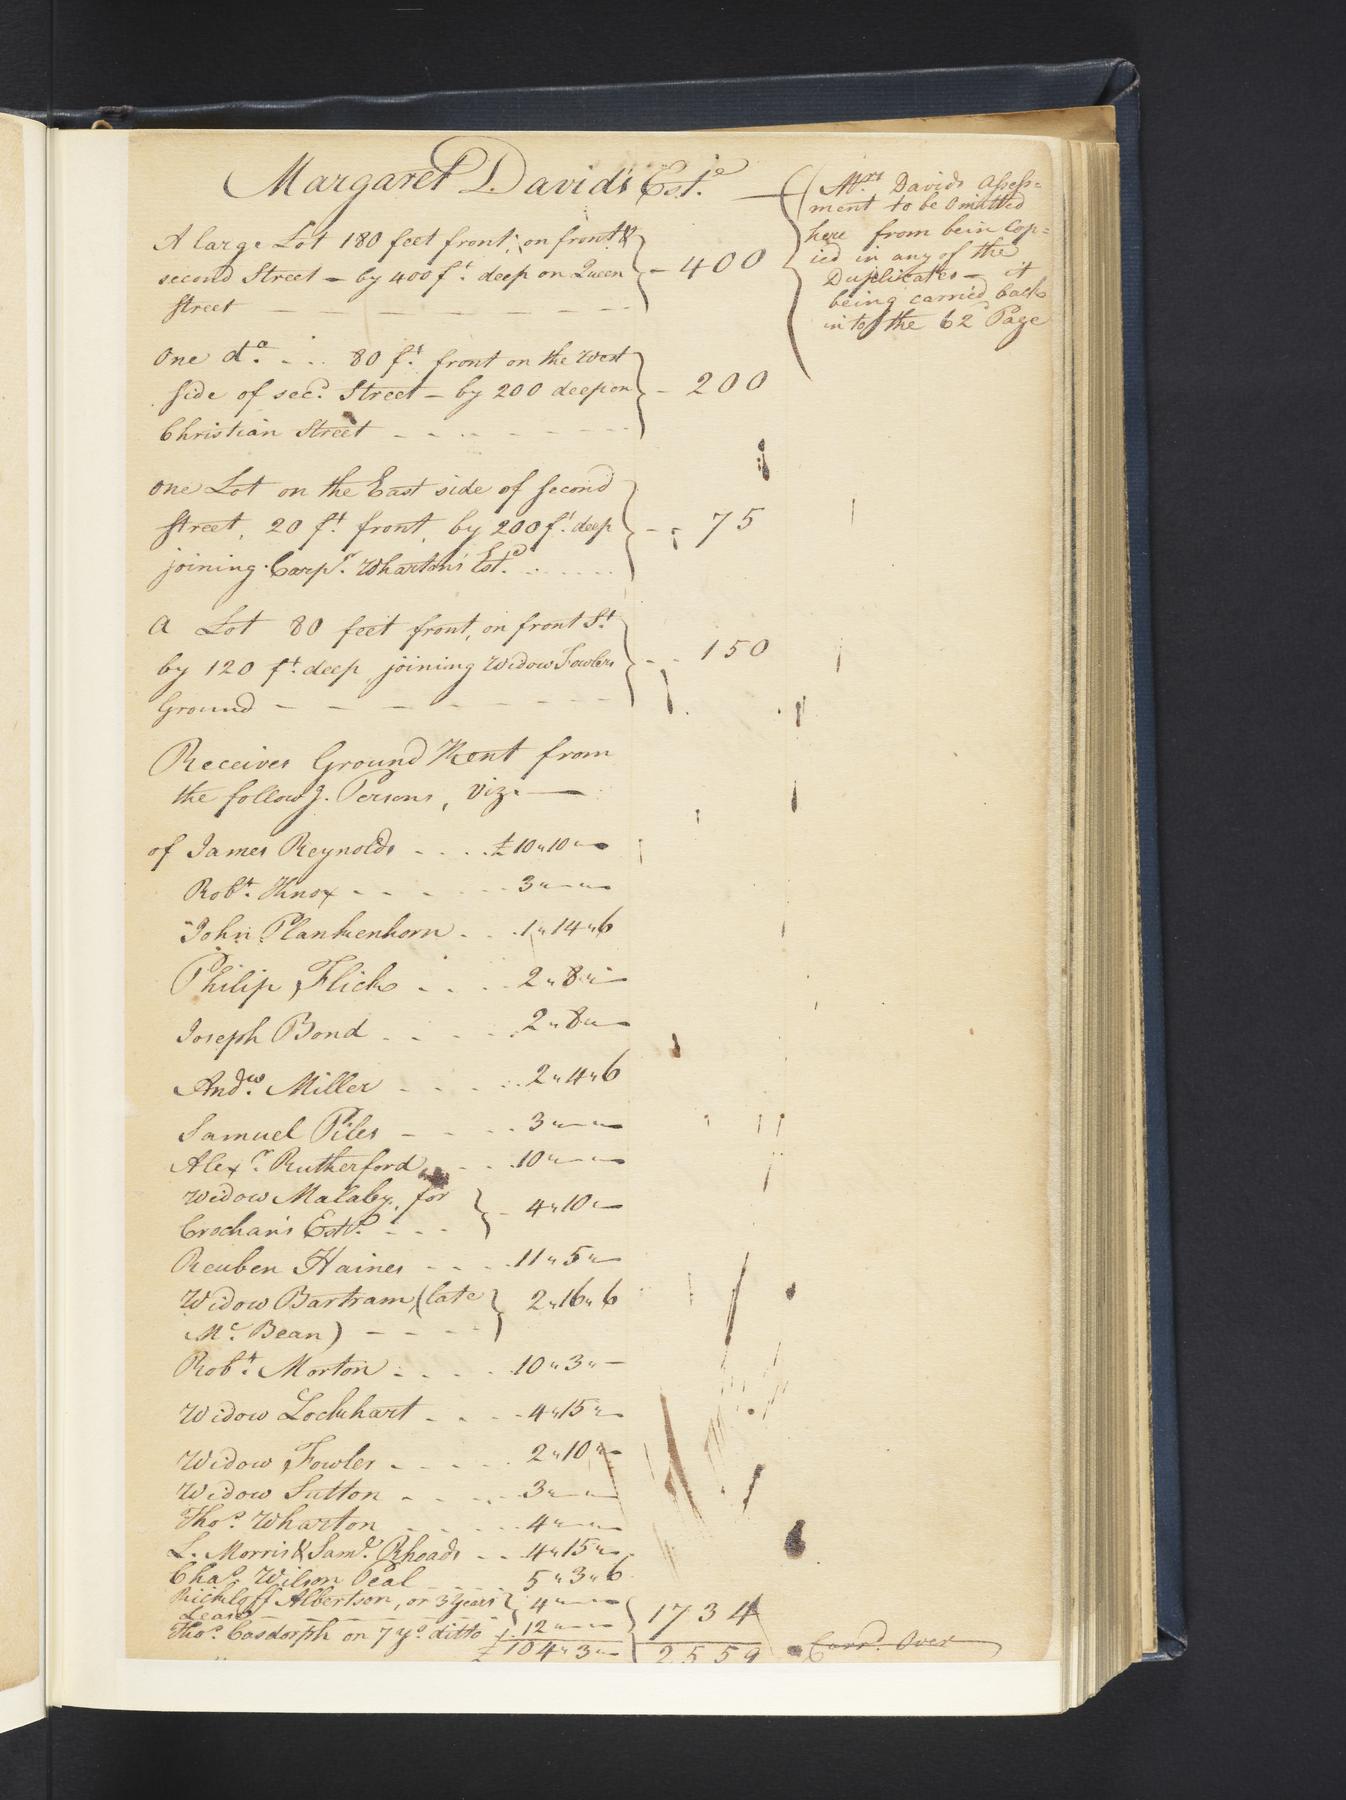 Margaret David's Est.e
Mrs. Davids assess=
ment to be Omitted
here from bein Cop=
ied in any of the
Duplicates — it
being carried back
into the 62 Page
A large Lot 180 feet front, on front &
second Street — by 400 ft. deep on Queen — 400
Street
One do. 80 ft. front on the West
side of secd. Street — by 200 deep on — 200
Christian Street
One Lot on the East side of second
street, 20 ft. front, by 200 ft. deep — 75
joining Carpr. Wharton's Este.
A Lot 80 feet front, on front St.
by 120 ft. deep, joining Widow Fowlers — 150
Ground
Receives Ground Rent from
the followg. Persons, Viz. —
of James Reynolds £10"10"—
Robt. Knox 3"—"—
John Plankenhorn 1"14"6
Philip Flick 2"8"—
Joseph Bond 2"8"—
Andw. Miller 2"4"6
Samuel Piles 3"—"—
Alexr. Rutherford 10"—"—
Widow Malaby, for
Crochan's Este. 4"10"—
Reuben Haines 11"5"—
Widow Bartram (late 2"16"6
Mc. Bean)
Robt. Morton 10"3"—
Widow Lockhart 4"15"—
Widow Fowler 2"10"—
Widow Sutton 3"—"—
Thos. Wharton 4"—"—
L. Morris & Saml. Rhoads 4"15"—
Chas. Wilson Peal 5"3"6
Rickloff Albertson, or 3 years 4"—"—
Lease 1734
Thos. Casdorph on 7 ys. ditto 12"—"—
£104"3"— 2559 Carrd. Over